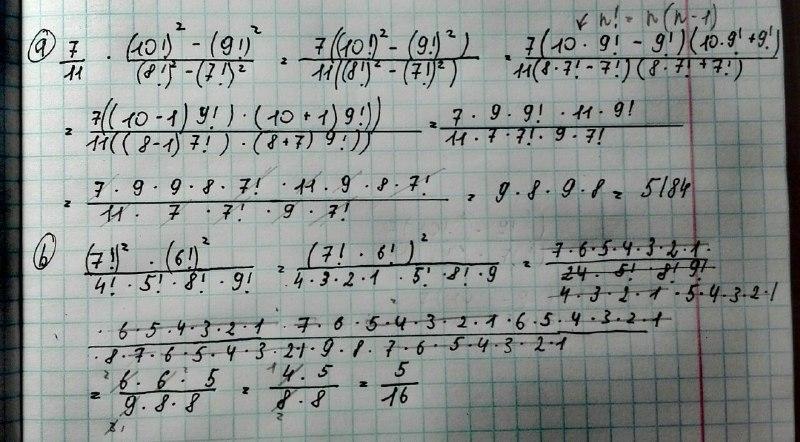 n! = n(n-1)
a) 7/11 · ((10!)² - (9!)²)/((8!)² - (7!)²) = 7((10!)² - (9!)²)/11((8!)² - (7!)²) = 7(10·9! - 9!)(10·9! + 9!)/11(8·7! - 7!)(8·7! + 7!)
= 7((10-1)9!)·(10+1)9!))/11((8-1)7!)·(8+7)9!)) = 7·9·9!·11·9!/11·7·7!·9·7!
= 7·9·9·8·7!·11·9·8·7!/11·7·7!·9·7! = 9·8·9·8 = 5184
b) (7!)²·(6!)²/4!·5!·8!·9! = (7!·6!)²/4·3·2·1·5!·8!·9 = 7·6·5·4·3·2·1·/24·5!·8!9!
4·3·2·1·5·4·3·2·1
·6·5·4·3·2·1·7·6·5·4·3·2·1·6·5·4·3·2·1/·8·7·6·5·4·3·21·9·8·7·6·5·4·3·2·1
= 6·6·5/9·8·8 = 4·5/8·8 = 5/16